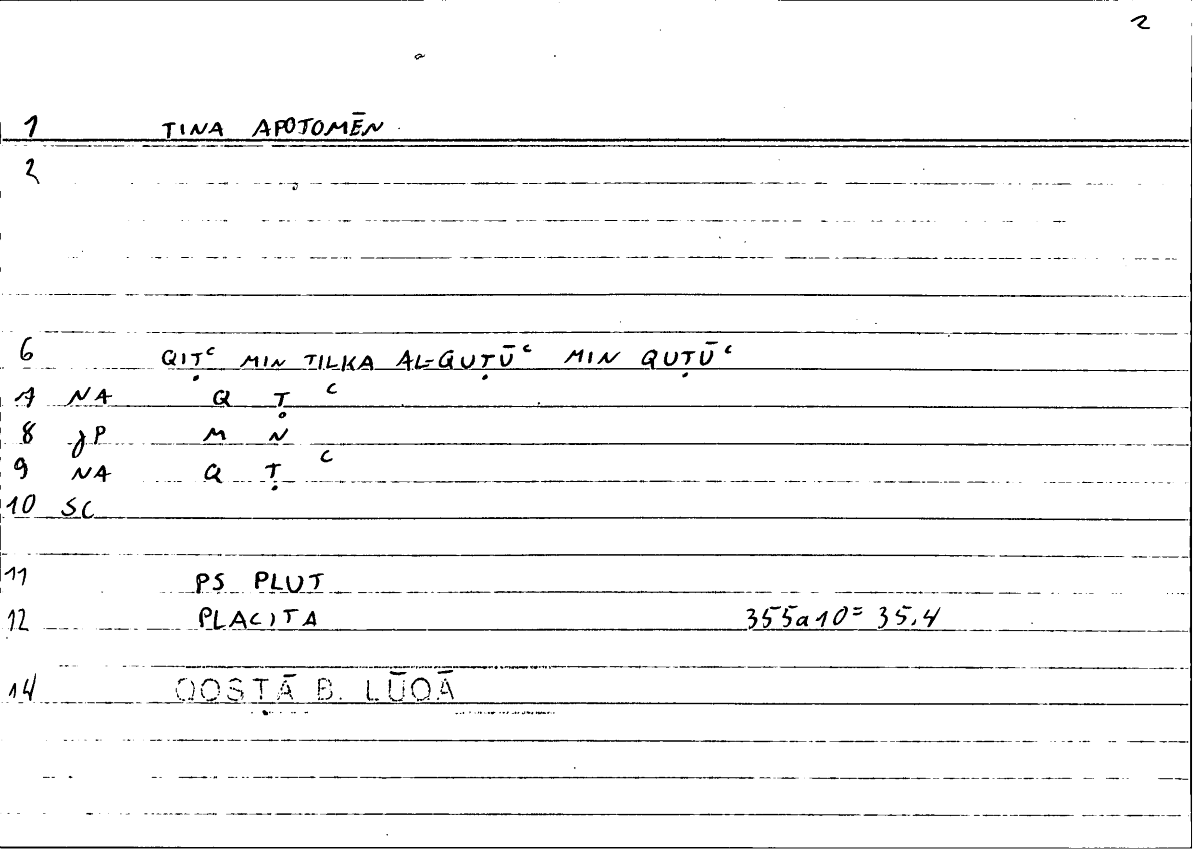 2
1 TINA APOTOMĒN
2
6 QIṬᶜ MIN TILKA AL-QUṬŪᶜ MIN QUṬŪᶜ
7 NA Q Ṭ ᶜ
8 JP M N
9 NA Q Ṭ ᶜ
10 SC
11 PS PLUT
12 PLACITA 355a10 = 35.4
14 QOSṬĀ B. LŪQĀ